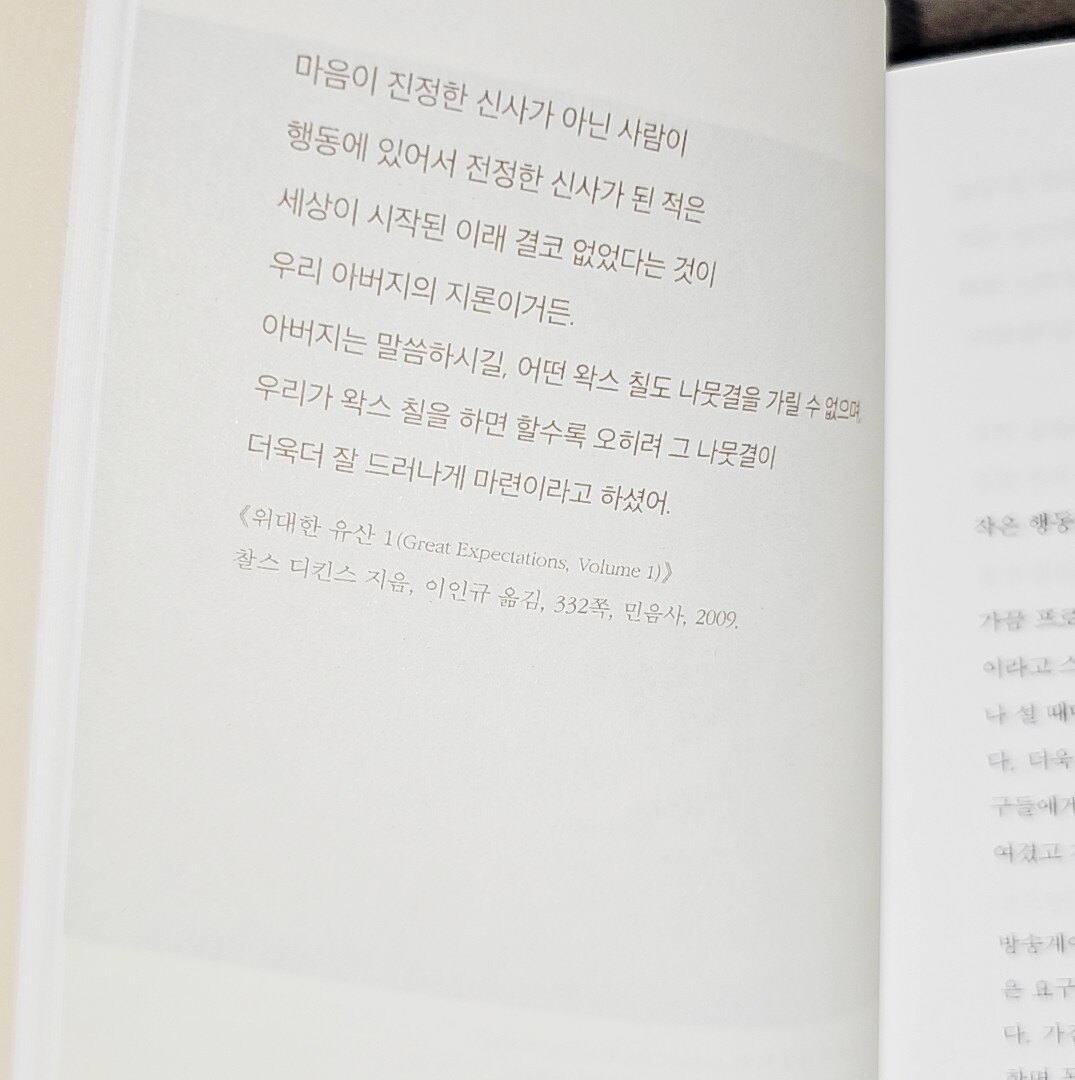 마음이 진정한 신사가 아닌 사람이
행동에 있어서 전정한 신사가 된 적은
세상이 시작된 이래 결코 없었다는 것이
우리 아버지의 지론이거든.
아버지는 말씀하시길, 어떤 왁스 칠도 나뭇결을 가릴 수 없으며,
우리가 왁스 칠을 하면 할수록 오히려 그 나뭇결이
더욱더 잘 드러나게 마련이라고 하셨어.
《위대한 유산 1(Great Expectations, Volume 1)》
찰스 디킨스 지음, 이인규 옮김, 332쪽, 민음사, 2009.
작은 행동
가끔
이라고
나 설
다. 더욱
구들에게
여겼고
은 요구
다.